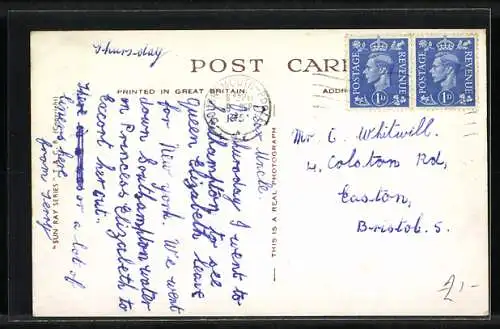 Thursday
POST CARD
PRINTED IN GREAT BRITAIN.
Dear Uncle.
I went to
Southampton to see
Queen Elizabeth leave
for New york. We went
down Southampton water
on Princess Elizabeth to
Escort her out.
There a lot of
liners here
from Terry
THIS IS A REAL PHOTOGRAPH
"SUN RAY SERIES
POSTAGE
REVENUE
1D
POSTAGE
REVENUE
1D
Mr C. Whitwill.
4. Colston Rd,
Easton,
Bristol. 5.
£1-